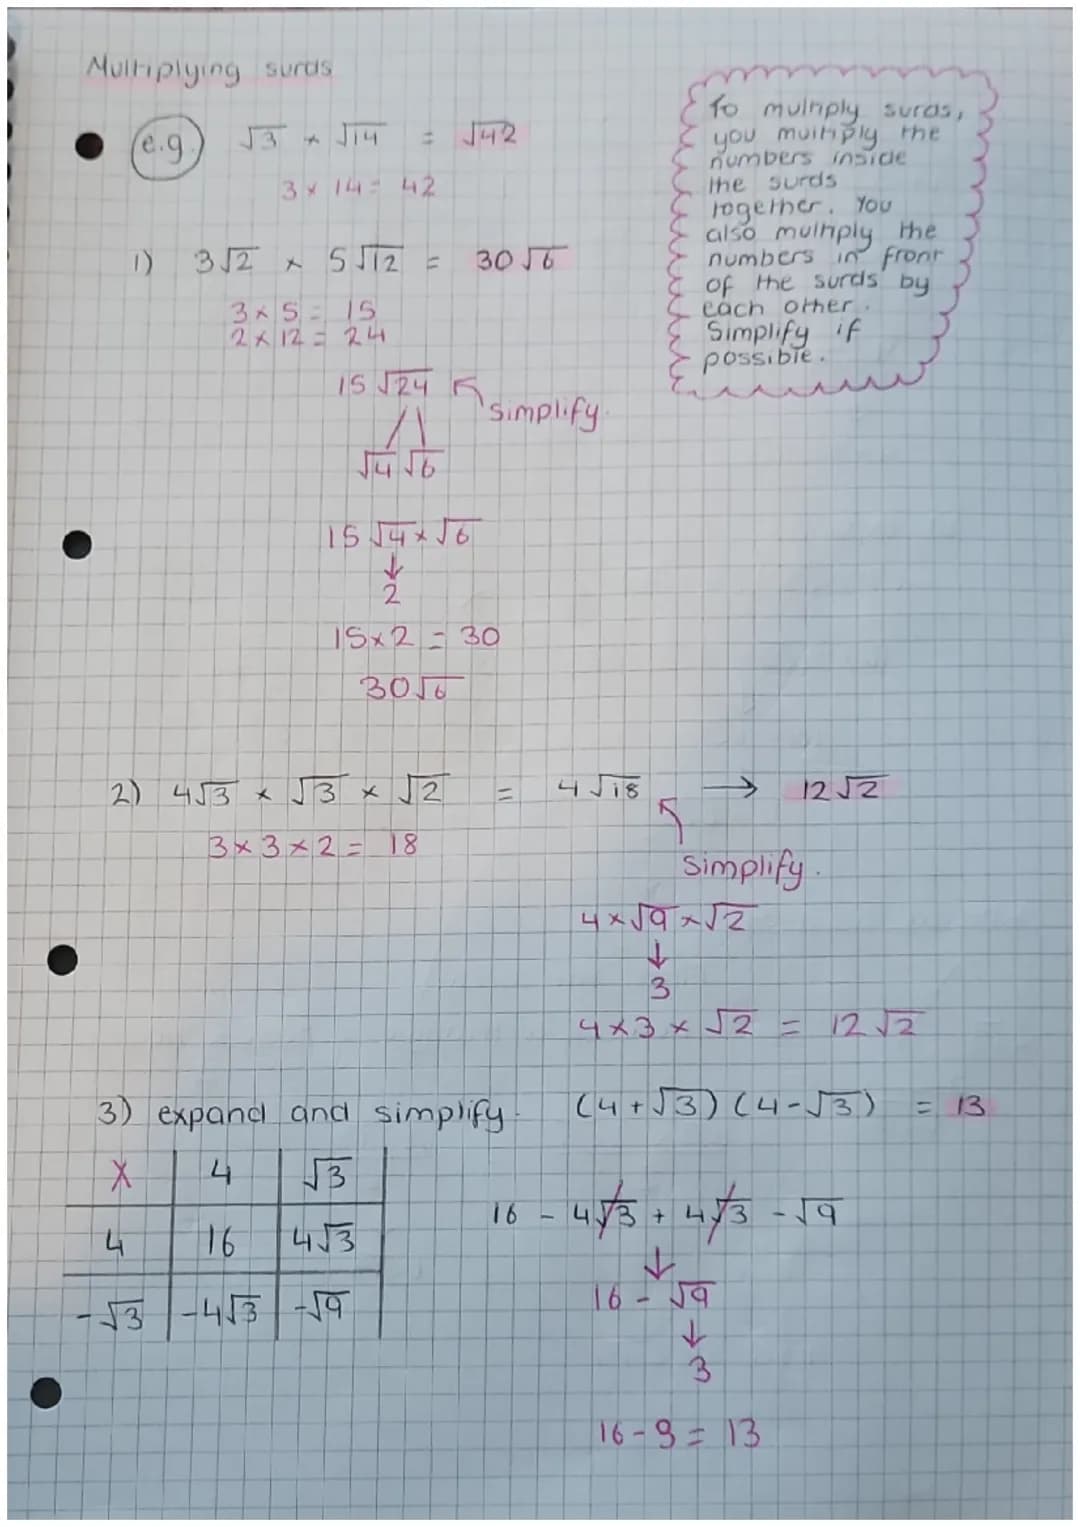 Multiplying surds
e.g. √3 × √14 = √42
3 × 14 = 42
To multiply surds,
you multiply the
numbers inside
the surds
together. You
also multiply the
numbers in front
of the surds by
each other.
Simplify if
possible.
1) 3√2 × 5√12 = 30√6
3 × 5 = 15
2 × 12 = 24
15√24
simplify.
√4 √6
15√4 × √6
↓
2
15 × 2 = 30
30√6
2) 4√3 × √3 × √2 = 4√18 → 12√2
3 × 3 × 2 = 18
simplify.
4 × √9 × √2
↓
3
4 × 3 × √2 = 12√2
3) expand and simplify. (4 + √3)(4 - √3) = 13
X 4 √3
4 16 4√3
-√3 -4√3 -√9
16 - 4√3 + 4√3 - √9
↓
16 - √9
↓
3
16 - 3 = 13